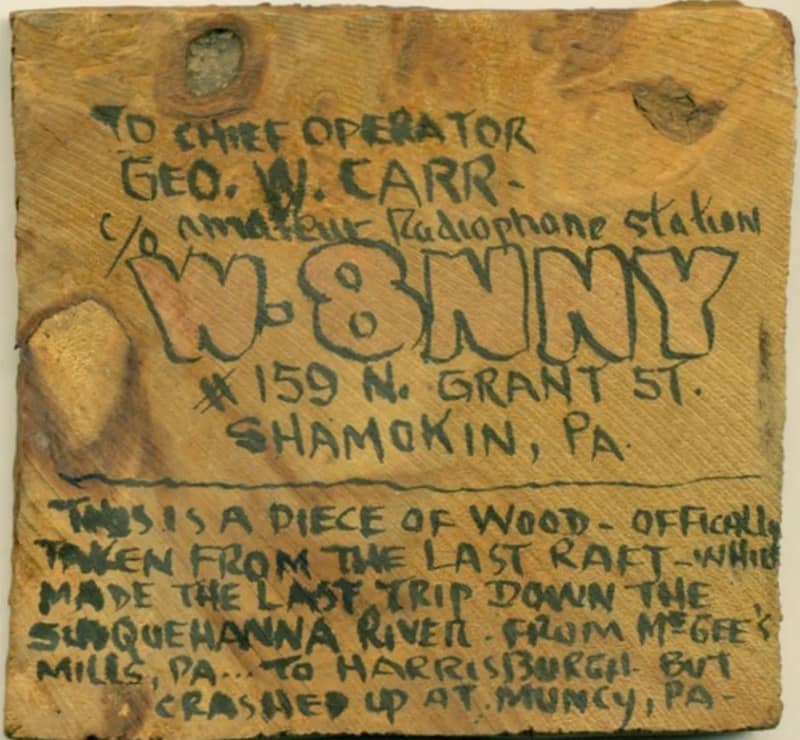 TO CHIEF OPERATOR
GEO. W. CARR-
c/o amateur Radiophone station
W-8NNY
# 159 N. GRANT ST.
SHAMOKIN, PA.
THIS IS A PIECE OF WOOD - OFFICALLY
TAKEN FROM THE LAST RAFT - WHICH
MADE THE LAST TRIP DOWN THE
SUSQUEHANNA RIVER. FROM McGEE'S
MILLS, PA... TO HARRISBURGH. BUT
CRASHED UP AT. MUNCY, PA-